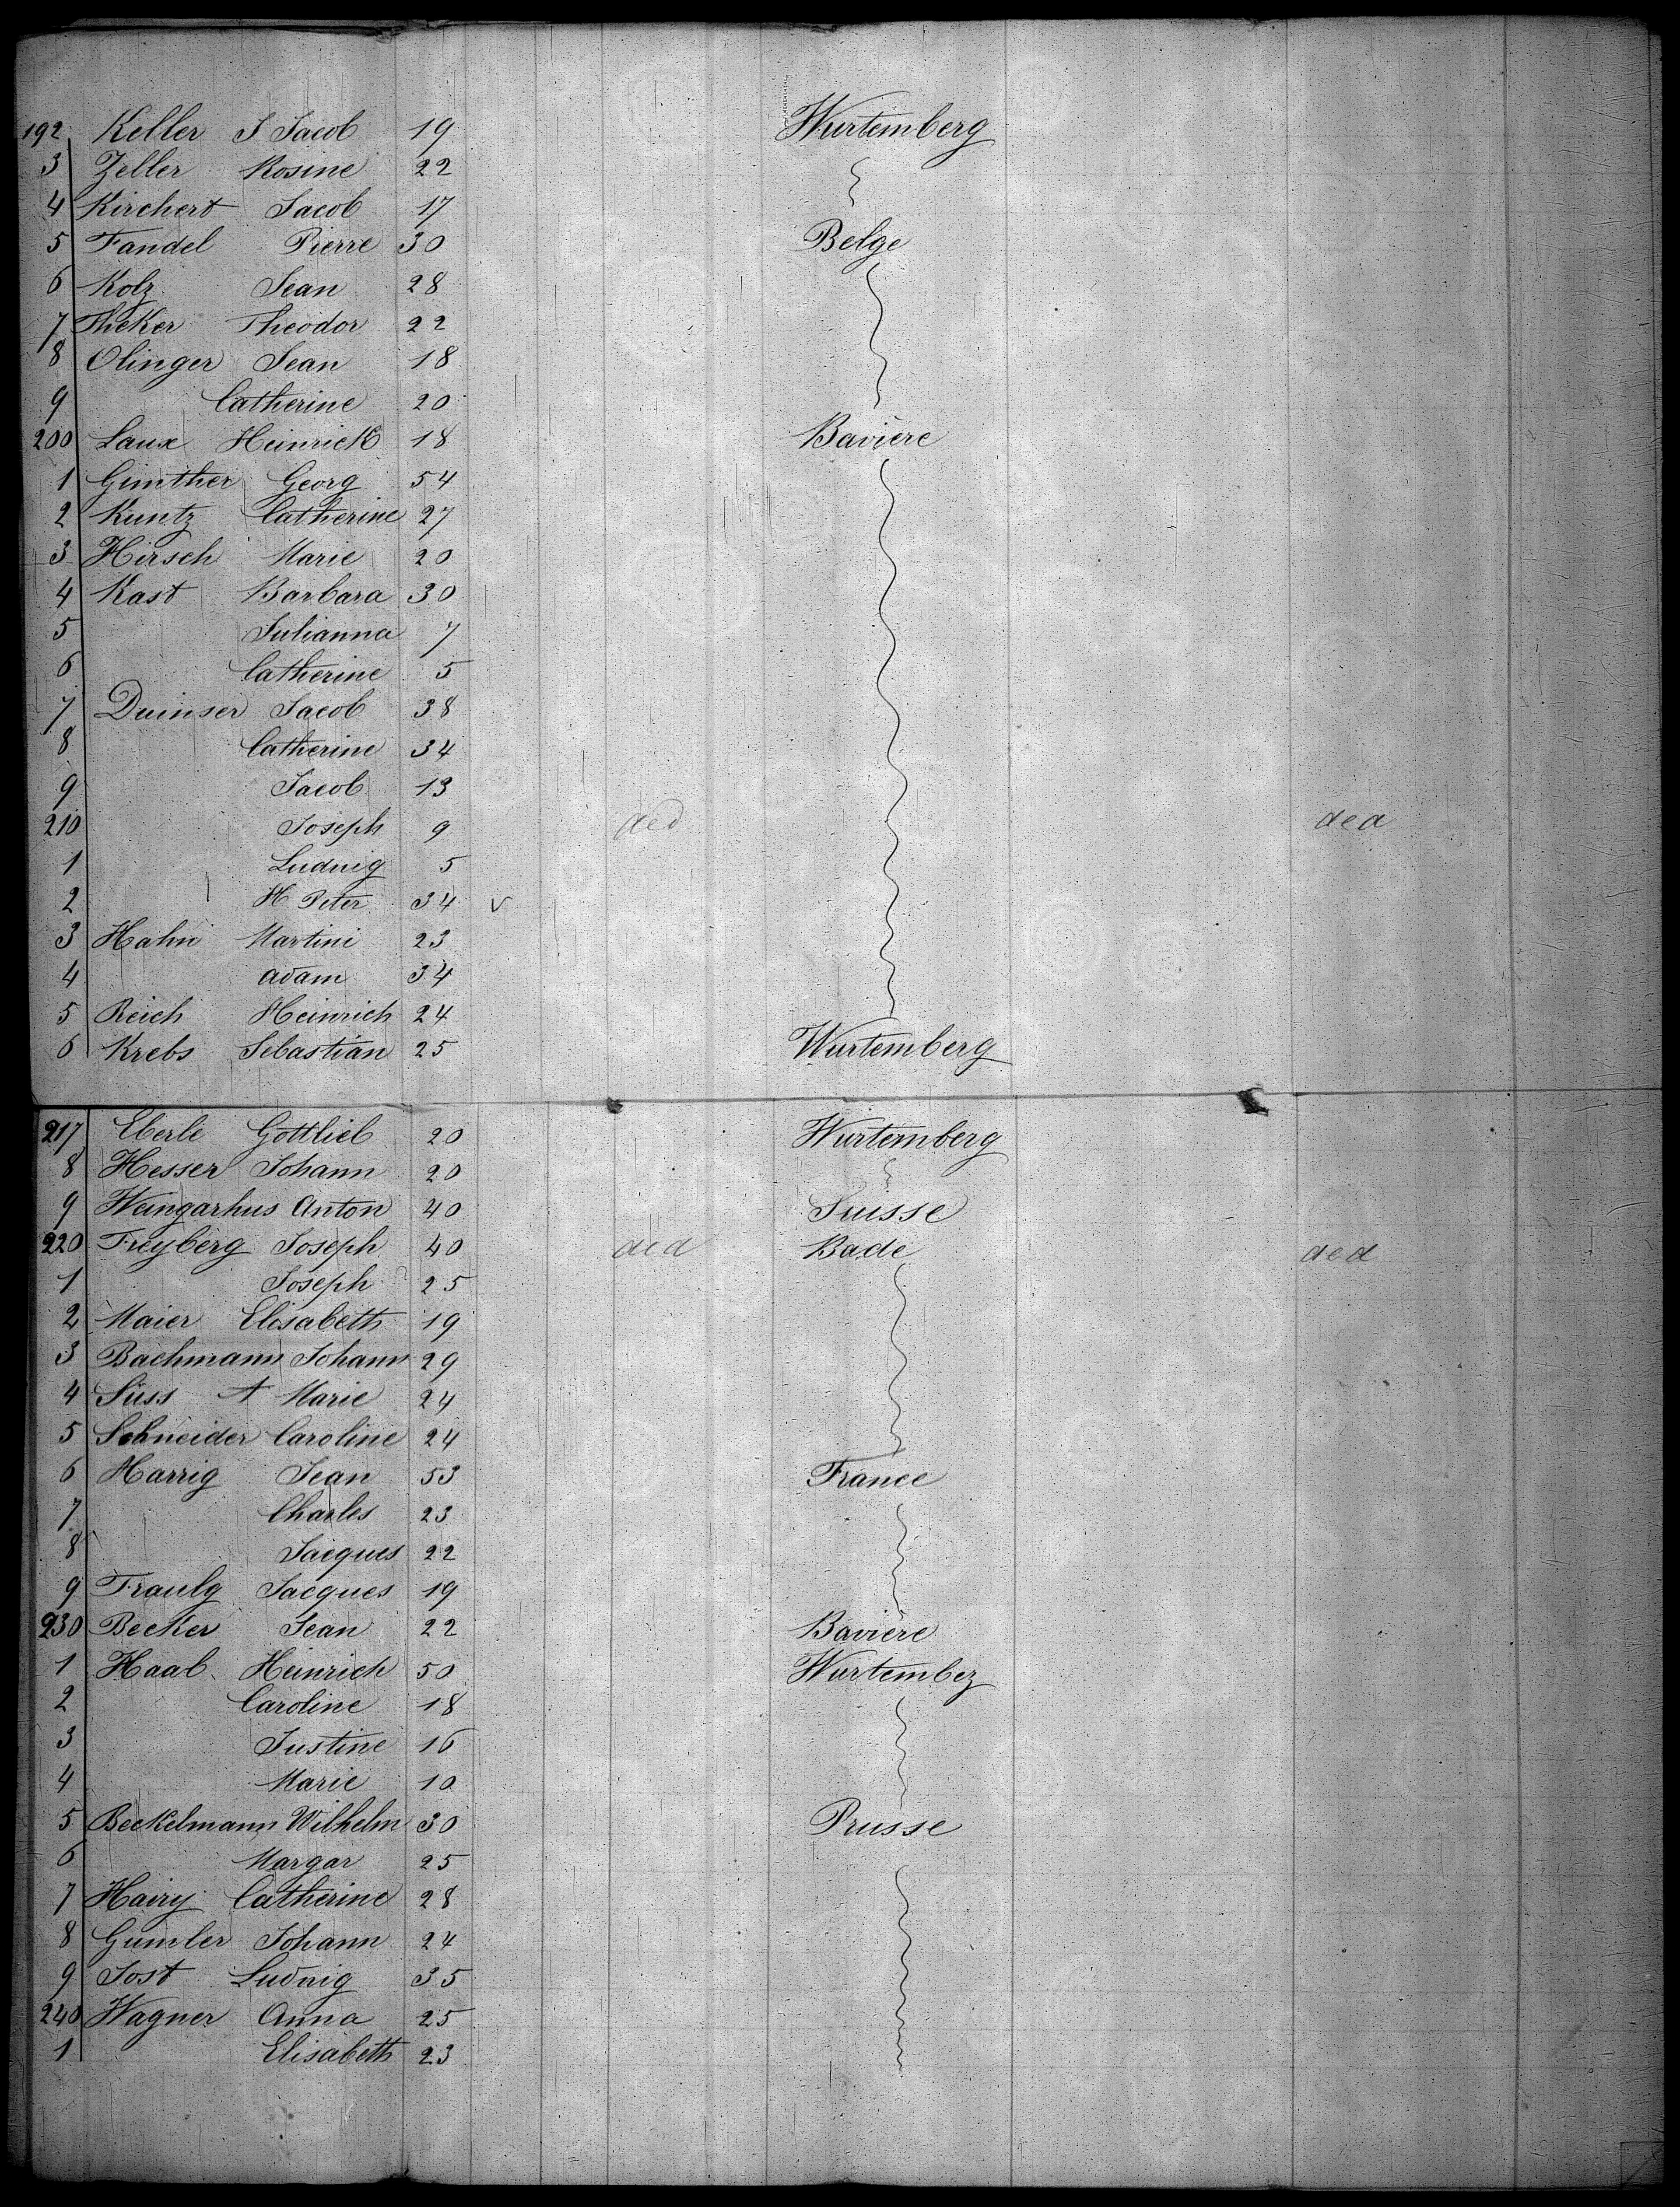 192 Keller J Jacob 19 Wurtemberg
3 Zeller Rosine 22
4 Kirchert Jacob 17
5 Fandel Pierre 30 Belge
6 Kolz Jean 28
7 Theker Theodor 22
8 Olinger Jean 18
9 Catherine 20
200 Laux Heinrich 18 Bavière
1 Günther Georg 54
2 Kuntz Catherine 27
3 Hirsch Marie 20
4 Kast Barbara 30
5 Julianna 7
6 Catherine 5
7 Duinser Jacob 38
8 Catherine 34
9 Jacob 13
210 Joseph 9 ded ded
1 Ludwig 5
2 H Peter 34 v
3 Hahn Martini 23
4 adam 34
5 Reich Heinrich 24
6 Krebs Sebastian 25 Wurtemberg
217 Eberle Gottlieb 20 Wurtemberg
8 Hesser Johann 20
9 Weingarhus Anton 40 Suisse
220 Freyberg Joseph 40 ded Bade ded
1 Joseph 25
2 Maier Elisabeth 19
3 Bachmann Johann 29
4 Süss A Marie 24
5 Schneider Caroline 24
6 Harrig Jean 53 France
7 Charles 23
8 Jacques 22
9 Traulg Jacques 19
230 Becker Jean 22 Bavière
1 Haab Heinrich 50 Wurtembeg
2 Caroline 18
3 Justine 16
4 Marie 10
5 Beckelmann Wilhelm 30 Prusse
6 Margar 25
7 Hairy Catherine 28
8 Gumler Johann 24
9 Jost Ludwig 35
240 Wagner Anna 25
1 Elisabeth 23